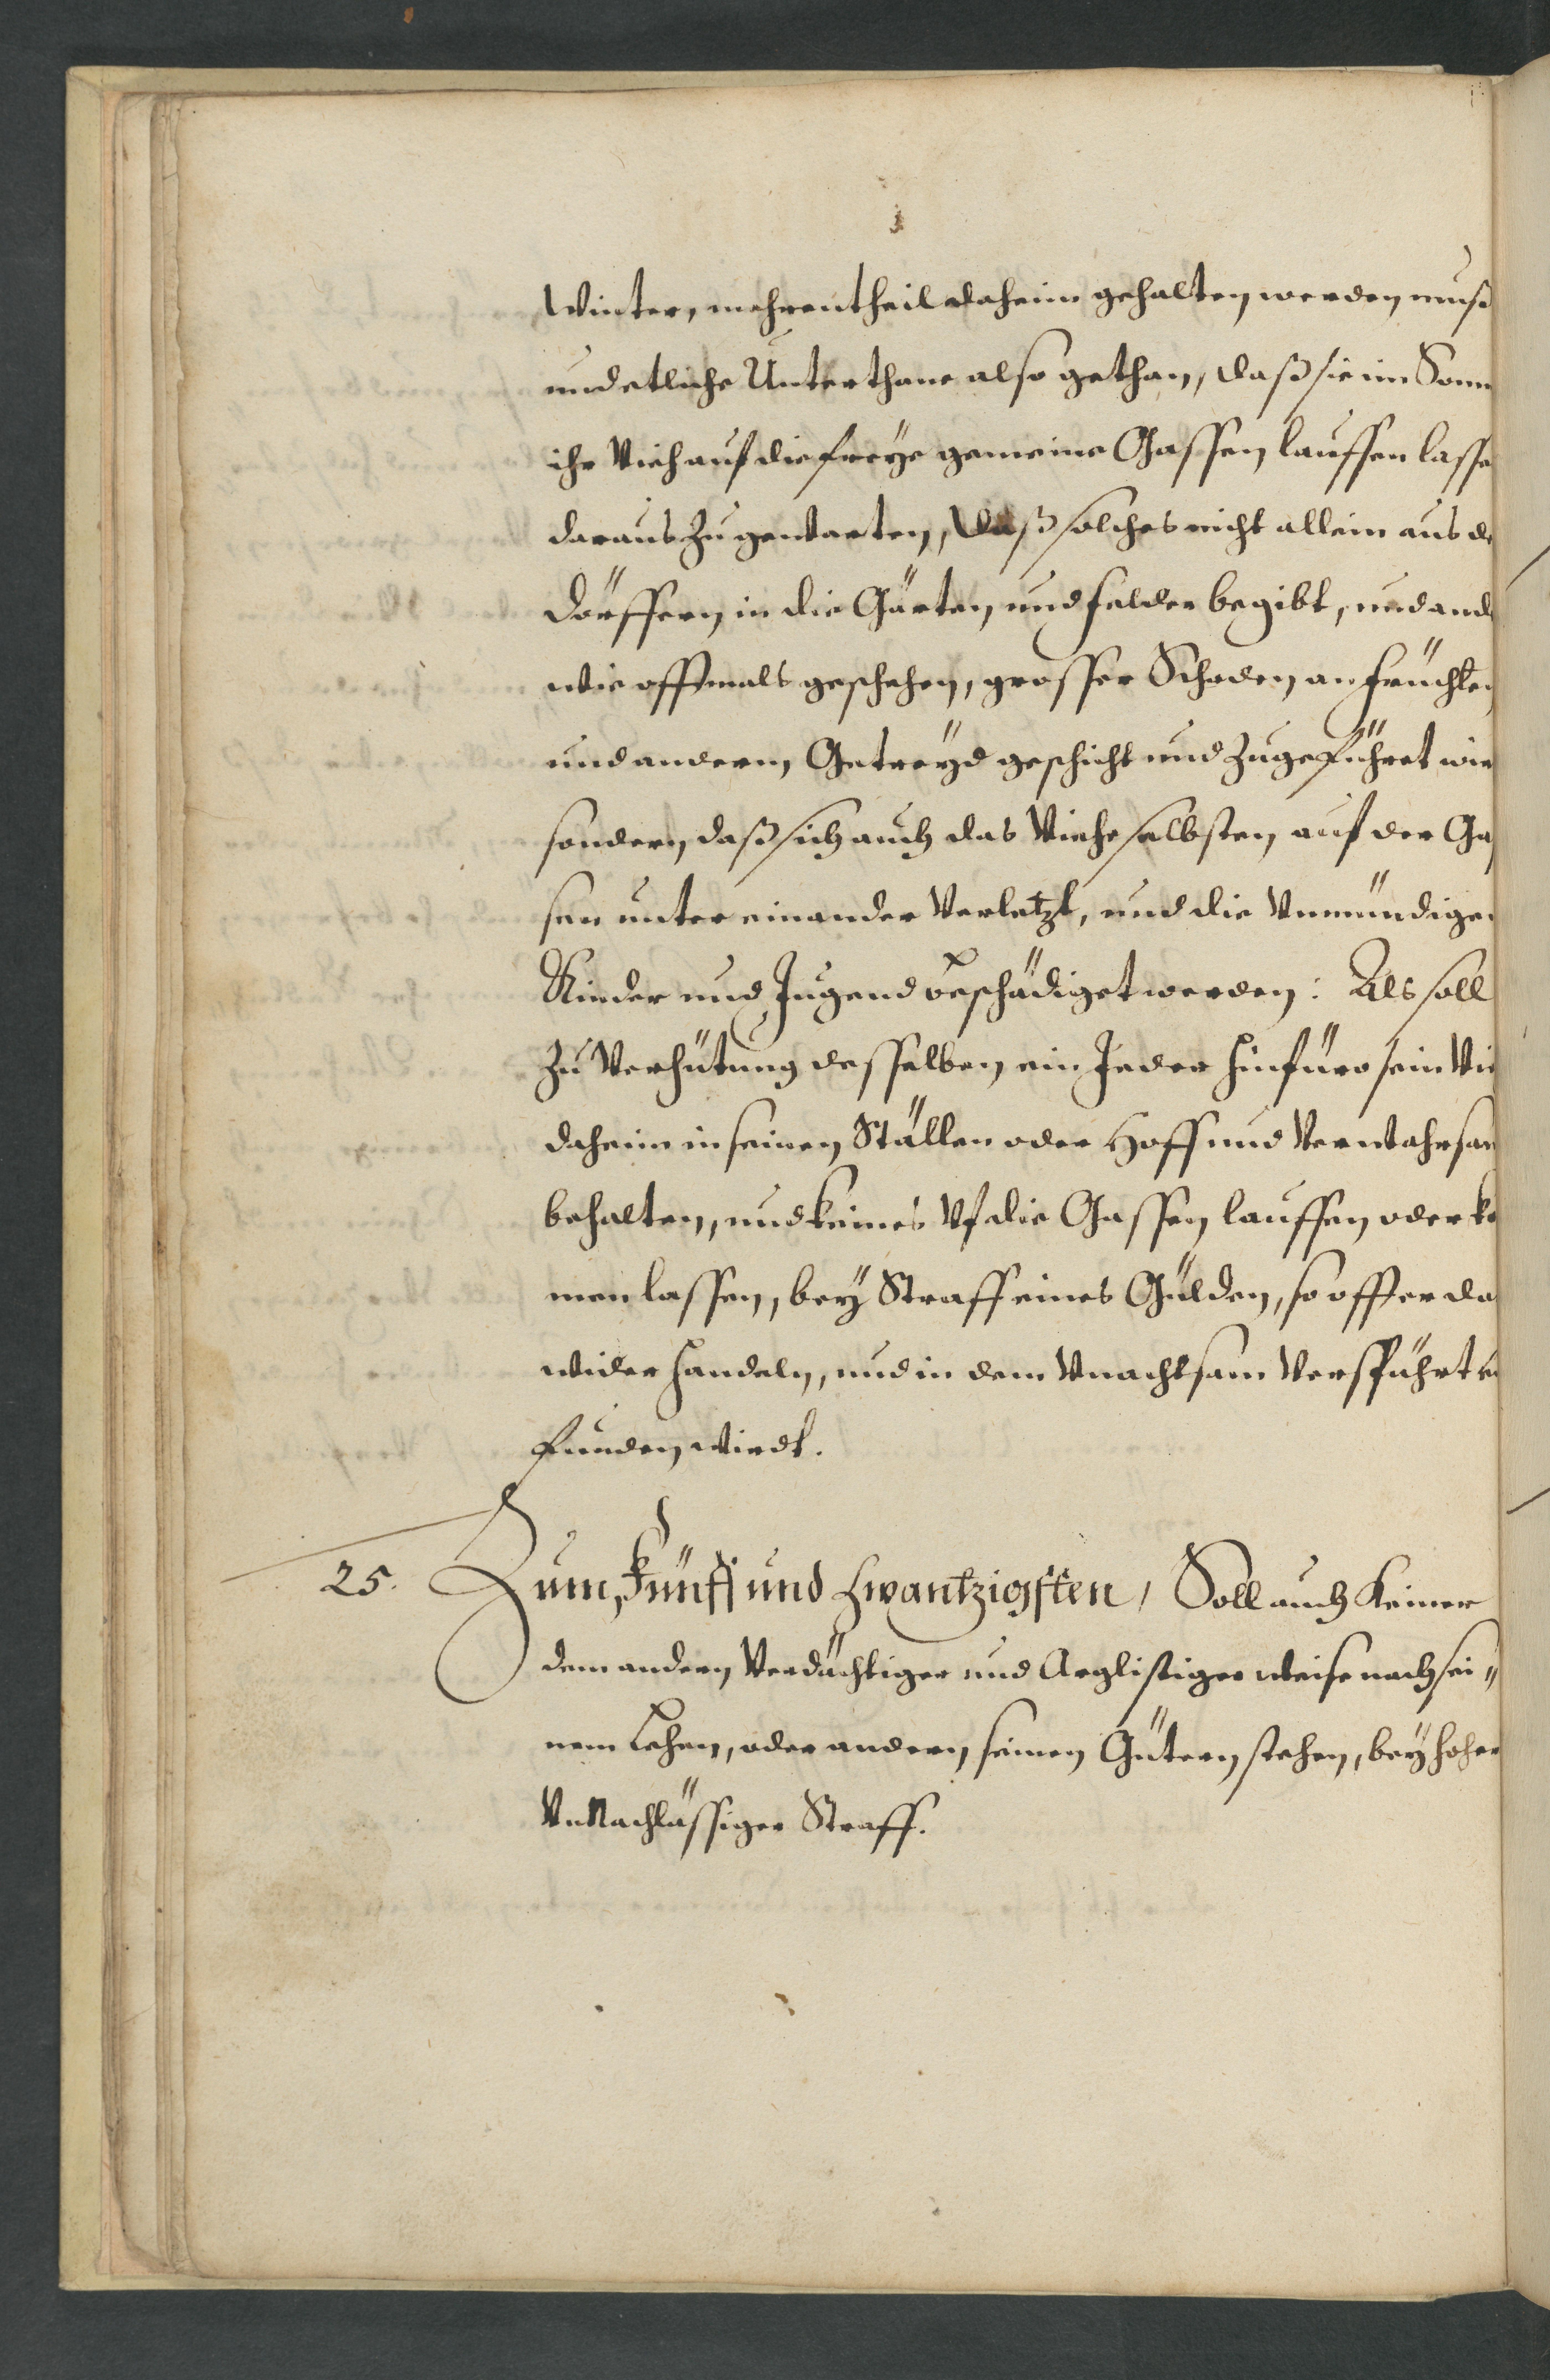 Winter, mehrentheil daheim gehalten werden muß
und etliche Unterthane also gethan, daß sie im Somm
ihr Vieh auf die freÿe gemeine Gassen lauffen lasse
daraus zu gewarten, daß solches nicht allein aus de
Dörffern in die Gärten und felder begibt, und and
wie offtmals geschehen, grosser Schaden an früchten
und andern Getreÿd geschicht und zugeführet wir
sondern, daß sich auch das Viehe selbsten auf der Gas
sen unter einander Verletzt, und die Vnmündigen
Kinder und Jugend beschädiget werden: Als soll
zu Verhütung desselben ein Jeder hinfüro sein Vie
daheim in seinen Ställen oder Hoff und Verwahrsam
behalten, und keines Vf die Gassen lauffen oder ko
men lassen, beÿ Straff eines Gülden, so offt er da
wider handeln, und in dem Vnachtsam Verspührt
funden wirdt.
25. Zum, Fünff und Zwantzigsten, Soll auch Keiner
dem andern Verdächtiger und Arglistiger weise nach sei„
nem Lehen, oder andern seinen Gütern stehen, beÿ hoher
VnNachlässiger Straff.